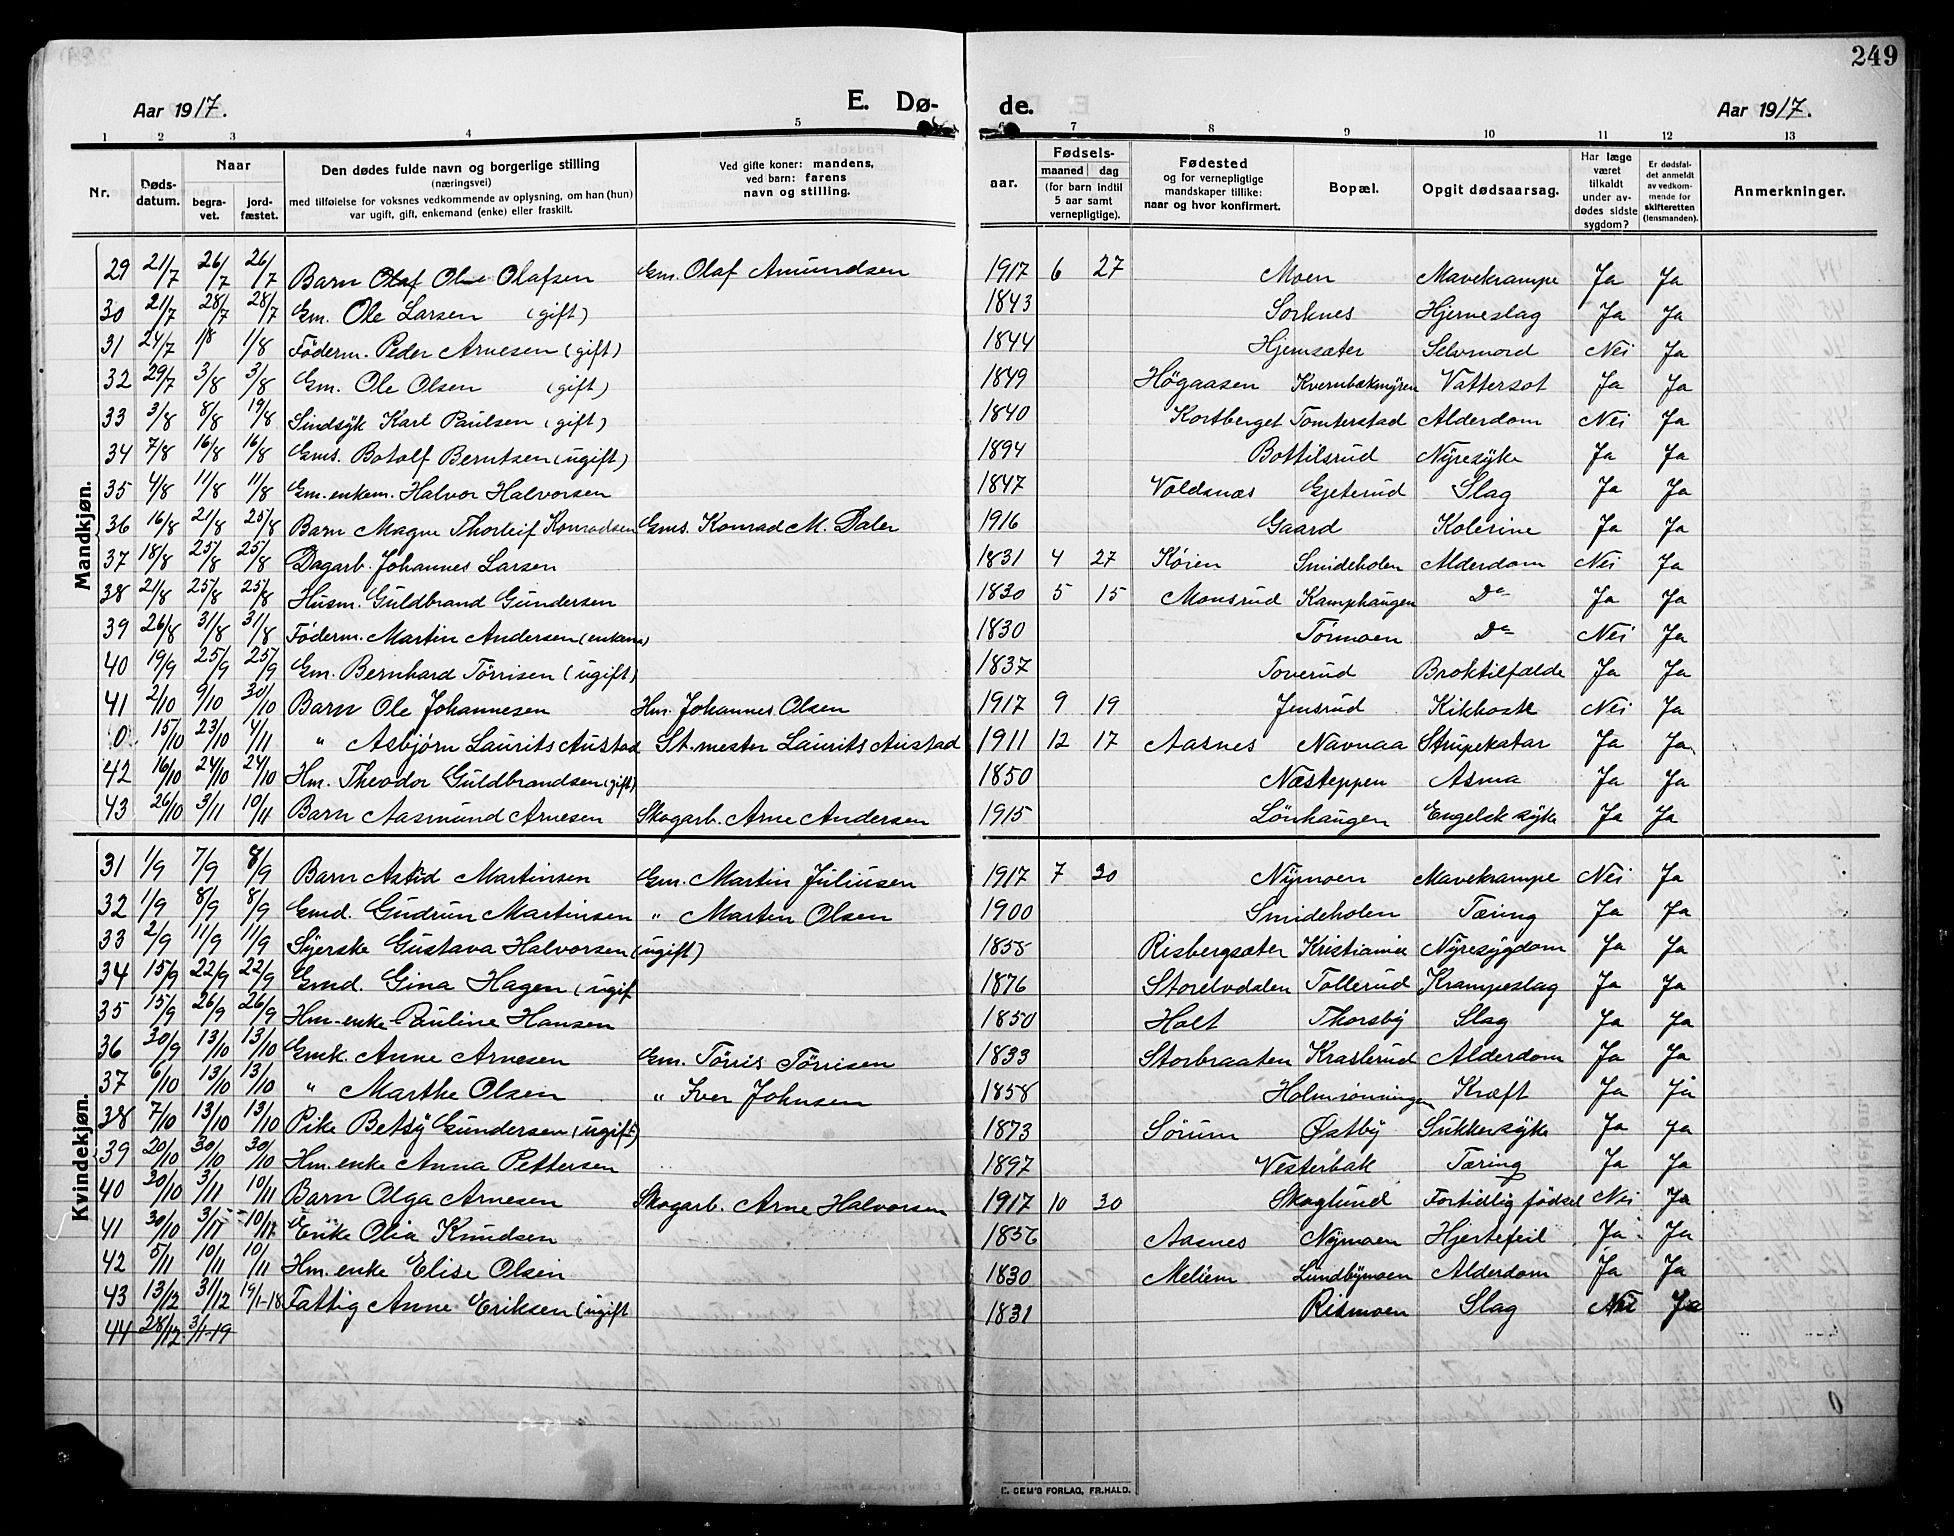 249
Aar 1917. E. Dø- de. Aar 1917.
1 2 3 4 5 6 7 8 9 10 11 12 13
Nr. Døds-datum. Naar begra-vet. jord-fæstet. Den dødes fulde navn og borgerlige stilling (næringsvei) med tilføielse for voksnes vedkommende av oplysning, om han (hun) var ugift, gift, enkemand (enke) eller fraskilt. Ved gifte koner: mandens, ved barn: farens navn og stilling. aar. Fødsels- maaned dag (for barn indtil 5 aar samt vernepligtige). Fødested og for vernepligtige mandskaper tillike: naar og hvor konfirmert. Bopæl. Opgit dødsaarsag. Har læge været tilkaldt under av-dødes sidste sygdom? Er dødsfal-det anmeldt av vedkom-mende for skifteretten (lensmanden). Anmerkninger.
Mandkjøn.
29 21/7 26/7 26/7 Barn Olaf Ole Olafsen Gm. Olaf Amundsen 1917 6 27 Moen Mavekrampe Ja Ja
30 21/7 28/7 28/7 Gm. Ole Larsen (gift) 1843 Sorknes Hjerneslag Ja Ja
31 24/7 1/8 1/8 Føderm. Peder Arnesen (gift) 1844 Hjemsæter Selvmord Nei Ja
32 29/7 3/8 3/8 Gm. Ole Olsen (gift) 1849 Högaasen Kvernbækmyren Vattersot Ja Ja
33 3/8 8/8 19/8 Sindsyk Karl Paulsen (gift) 1840 Kortberget Tomterstad Alderdom Nei Ja
34 7/8 16/8 16/8 Gms. Botolf Berntsen (ugift) 1894 Bottilsrud Nyresyke Ja Ja
35 4/8 11/8 11/8 Gm. enkem. Halvor Halvorsen 1847 Voldsnæs Gjeterud Slag Ja Ja
36 16/8 21/8 25/8 Barn Magne Thorleif Konradsen Gms. Konrad M. Daler 1916 Gaard Kolerine Ja Ja
37 18/8 25/8 25/8 Dagarb. Johannes Larsen 1831 4 27 Køien Smideholen Alderdom Nei Ja
38 21/8 25/8 25/8 Husm. Guldbrand Gundersen 1830 5 15 Monsrud Kamphaugen Do Ja Ja
39 26/8 31/8 31/8 Føderm. Martin Andersen 1830 Tørmoen Do Nei Ja
40 19/9 25/9 25/9 Gm. Bernhard Tørrisen (ugift) 1837 Toverud Broktilfælde Ja Ja
41 2/10 9/10 30/10 Barn Ole Johannesen Hm. Johannes Olsen 1917 9 19 Jensrud Kikhoste Nei Ja
0 15/10 23/10 4/11 " Asbjørn Laurits Austad St. mester Laurits Austad 1911 12 17 Aasnes Navnaa Strupekatar Ja Ja
42 16/10 24/10 24/10 Hm. Theodor Guldbrandsen (gift) 1850 Næsteppen Asma Ja Ja
43 26/10 3/11 10/11 Barn Aasmund Arnesen Skogarb. Arne Andersen 1915 Lönhaugen Engelsk syke Ja Ja
Kvindekjøn.
31 1/9 7/9 8/9 Barn Astrid Martinsen Gm. Martin Juliusen 1917 7 30 Nymoen Mavekrampe Nei Ja
32 1/9 8/9 8/9 Gmd. Gudrun Martinsen " Martin Olsen 1900 Smideholen Tæring Ja Ja
33 2/9 11/9 11/9 Syerske Gustava Halvorsen (ugift) 1855 Risbergsæter Kristiania Nyresygdom Ja Ja
34 15/9 22/9 22/9 Gmd. Gina Hagen (ugift 1876 Storelvdalen Tollerud Krampeslag Ja Ja
35 15/9 26/9 26/9 Hm. enke Pauline Hansen 1850 Holt Thorsby Slag Ja Ja
36 30/9 13/10 13/10 Gmk. Anne Arnesen Gm. Törris Törrisen 1833 Storbraaten Krasterud Alderdom Ja Ja
37 6/10 13/10 13/10 " Marthe Olsen " Iver Johnsen 1858 Holmrønningen Kræft Ja Ja
38 7/10 13/10 13/10 Pike Betsy Gundersen (ugift) 1873 Sørum Østby Sukkersyke Ja Ja
39 20/10 30/10 30/10 Hm. enke Anna Pettersen 1897 Vesterbak Tæring Ja Ja
40 30/10 3/11 10/11 Barn Olga Arnesen Skogarb. Arne Halvorsen 1917 10 30 Skoglund Fortidlig fødsel Nei Ja
41 30/10 3/11 10/11 Enke Olia Knudsen 1856 Aasnes Nymoen Hjertefeil Ja Ja
42 5/11 10/11 10/11 Hm. enke Elise Olsen 1830 Meliem Lundbymoen Alderdom Ja Ja
43 13/12 31/12 19/1-18 Fattig Anne Eriksen (ugift 1831 Rismoen Slag Nei Ja
44 28/12 3/1-19
0
E. SEM'S FORLAG, FR.HALD.